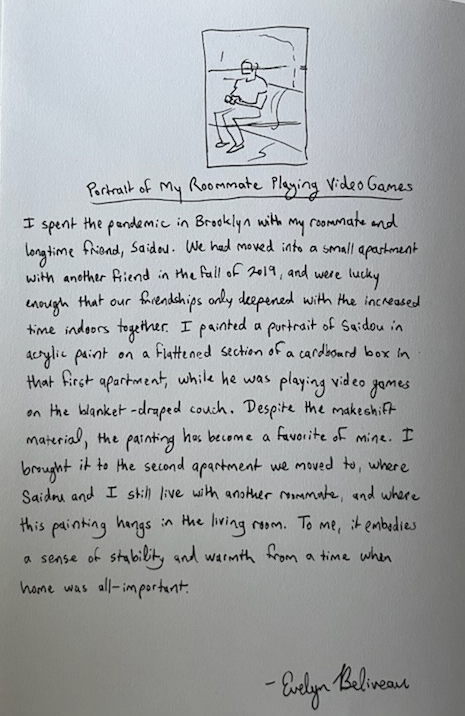 Portrait of My Roommate Playing Video Games
I spent the pandemic in Brooklyn with my roommate and
longtime friend, Saidou. We had moved into a small apartment
with another friend in the fall of 2019, and were lucky
enough that our friendships only deepened with the increased
time indoors together. I painted a portrait of Saidou in
acrylic paint on a flattened section of a cardboard box in
that first apartment, while he was playing video games
on the blanket-draped couch. Despite the makeshift
material, the painting has become a favorite of mine. I
brought it to the second apartment we moved to, where
Saidou and I still live with another roommate, and where
this painting hangs in the living room. To me, it embodies
a sense of stability and warmth from a time when
home was all-important.
- Evelyn Beliveau